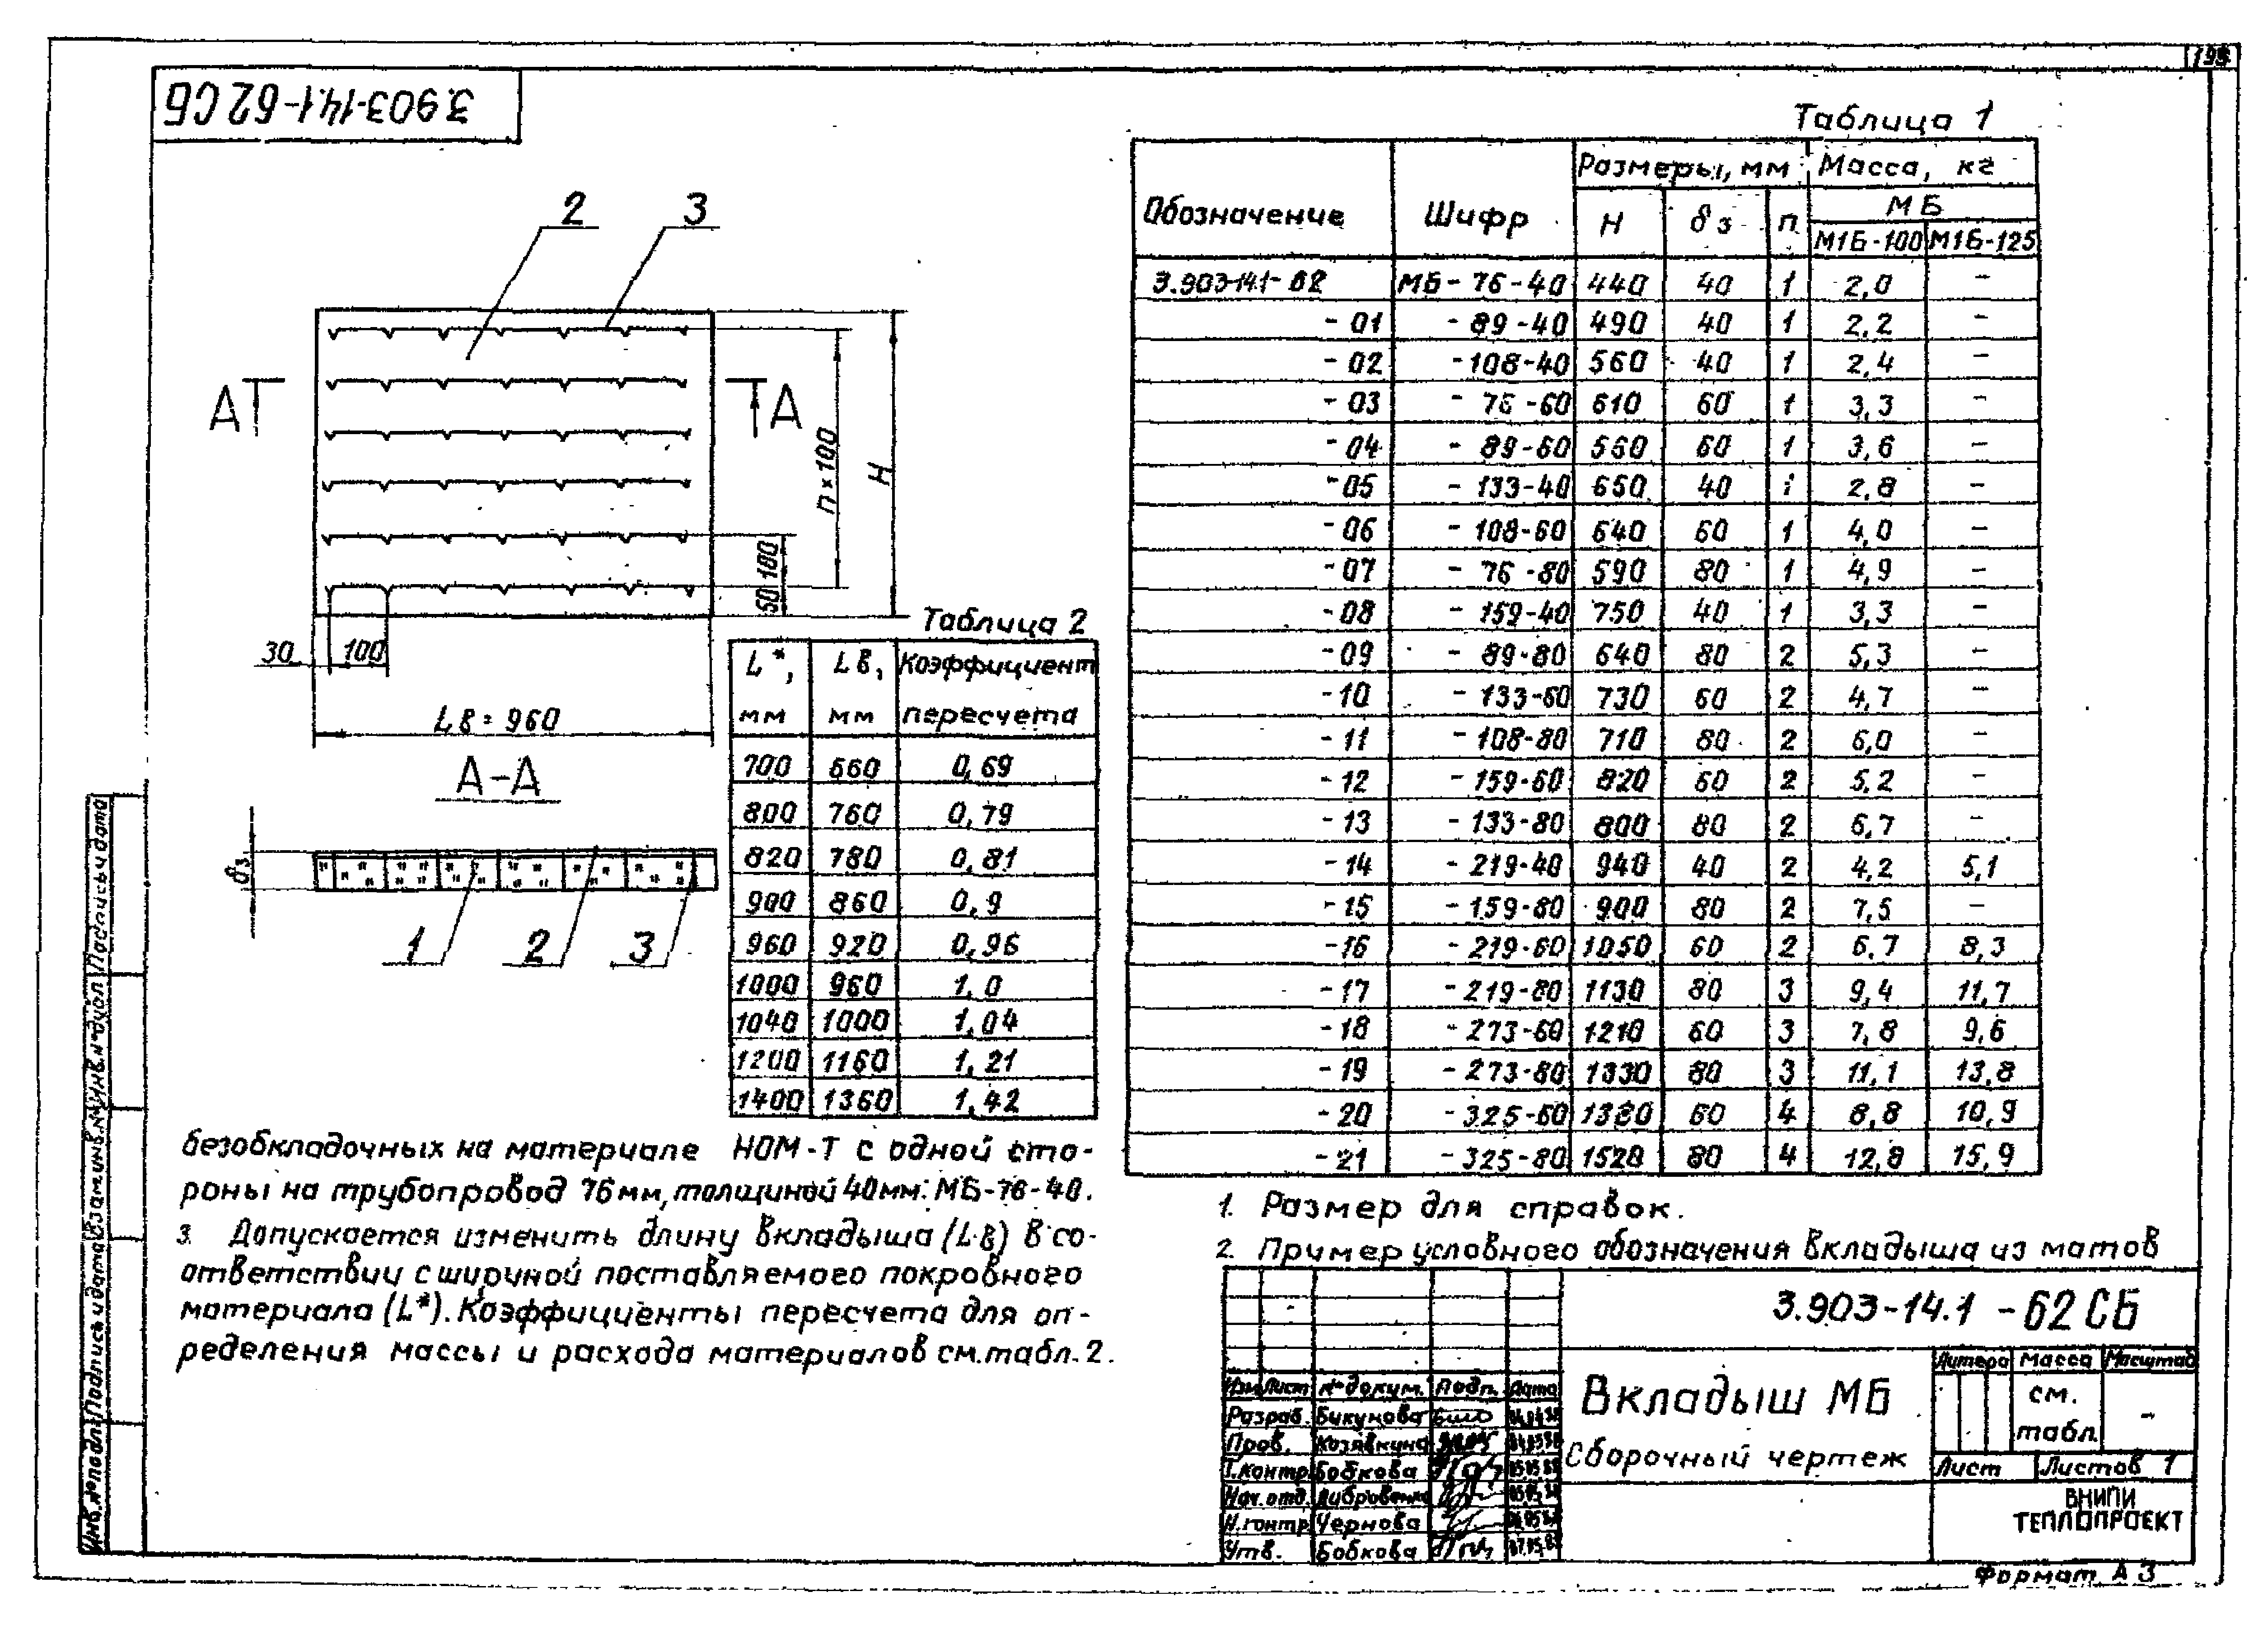 198
3.903-14.1-62 СБ
2
3
А
А
n×100
H
50
100
30
100
Lв=960
А-А
δз
1
2
3
Таблица 2
L*, мм | Lв, мм | Коэффициент пересчета
700 660 0,69
800 760 0,79
820 780 0,81
900 860 0,9
960 920 0,96
1000 960 1,0
1040 1000 1,04
1200 1160 1,21
1400 1360 1,42
Таблица 1
Обозначение | Шифр | Размеры, мм | Масса, кг
H | δз | n | МБ
М1Б-100 М1Б-125
3.903-14.1-62 МБ-76-40 440 40 1 2,0 –
-01 -89-40 490 40 1 2,2 –
-02 -108-40 560 40 1 2,4 –
-03 -76-60 610 60 1 3,3 –
-04 -89-60 560 60 1 3,6 –
-05 -133-40 650 40 1 2,8 –
-06 -108-60 640 60 1 4,0 –
-07 -76-80 590 80 1 4,9 –
-08 -159-40 750 40 1 3,3 –
-09 -89-80 640 80 2 5,3 –
-10 -133-60 730 60 2 4,7 –
-11 -108-80 710 80 2 6,0 –
-12 -159-60 820 60 2 5,2 –
-13 -133-80 800 80 2 6,7 –
-14 -219-40 940 40 2 4,2 5,1
-15 -159-80 900 80 2 7,5 –
-16 -219-60 1050 60 2 6,7 8,3
-17 -219-80 1130 80 3 9,4 11,7
-18 -273-60 1210 60 3 7,8 9,6
-19 -273-80 1330 80 3 11,1 13,8
-20 -325-60 1380 60 4 8,8 10,9
-21 -325-80 1520 80 4 12,8 15,9
1. Размер для справок.
2. Пример условного обозначения вкладыша из матов
безобкладочных на материале НОМ-Т с одной сто-
роны на трубопровод 76мм, толщиной 40мм: МБ-76-40.
3. Допускается изменить длину вкладыша (Lв) в со-
ответствии с шириной поставляемого покровного
материала (L*). Коэффициенты пересчета для оп-
ределения массы и расхода материалов см. табл. 2.
3.903-14.1-62 СБ
Изм Лист № докум. Подп. Дата
Разраб. Бикунова
Пров. Козявкина
Т.контр Бобкова
Нач. отд.
Н.контр Чернова
Утв. Бобкова
Вкладыш МБ
Сборочный чертеж
Литера Масса Масштаб
см. табл. –
Лист Листов 1
ВНИПИ
ТЕПЛОПРОЕКТ
Формат А3
Инв. № подл. Подпись и дата Взам. инв. № Инв. № дубл. Подпись и дата